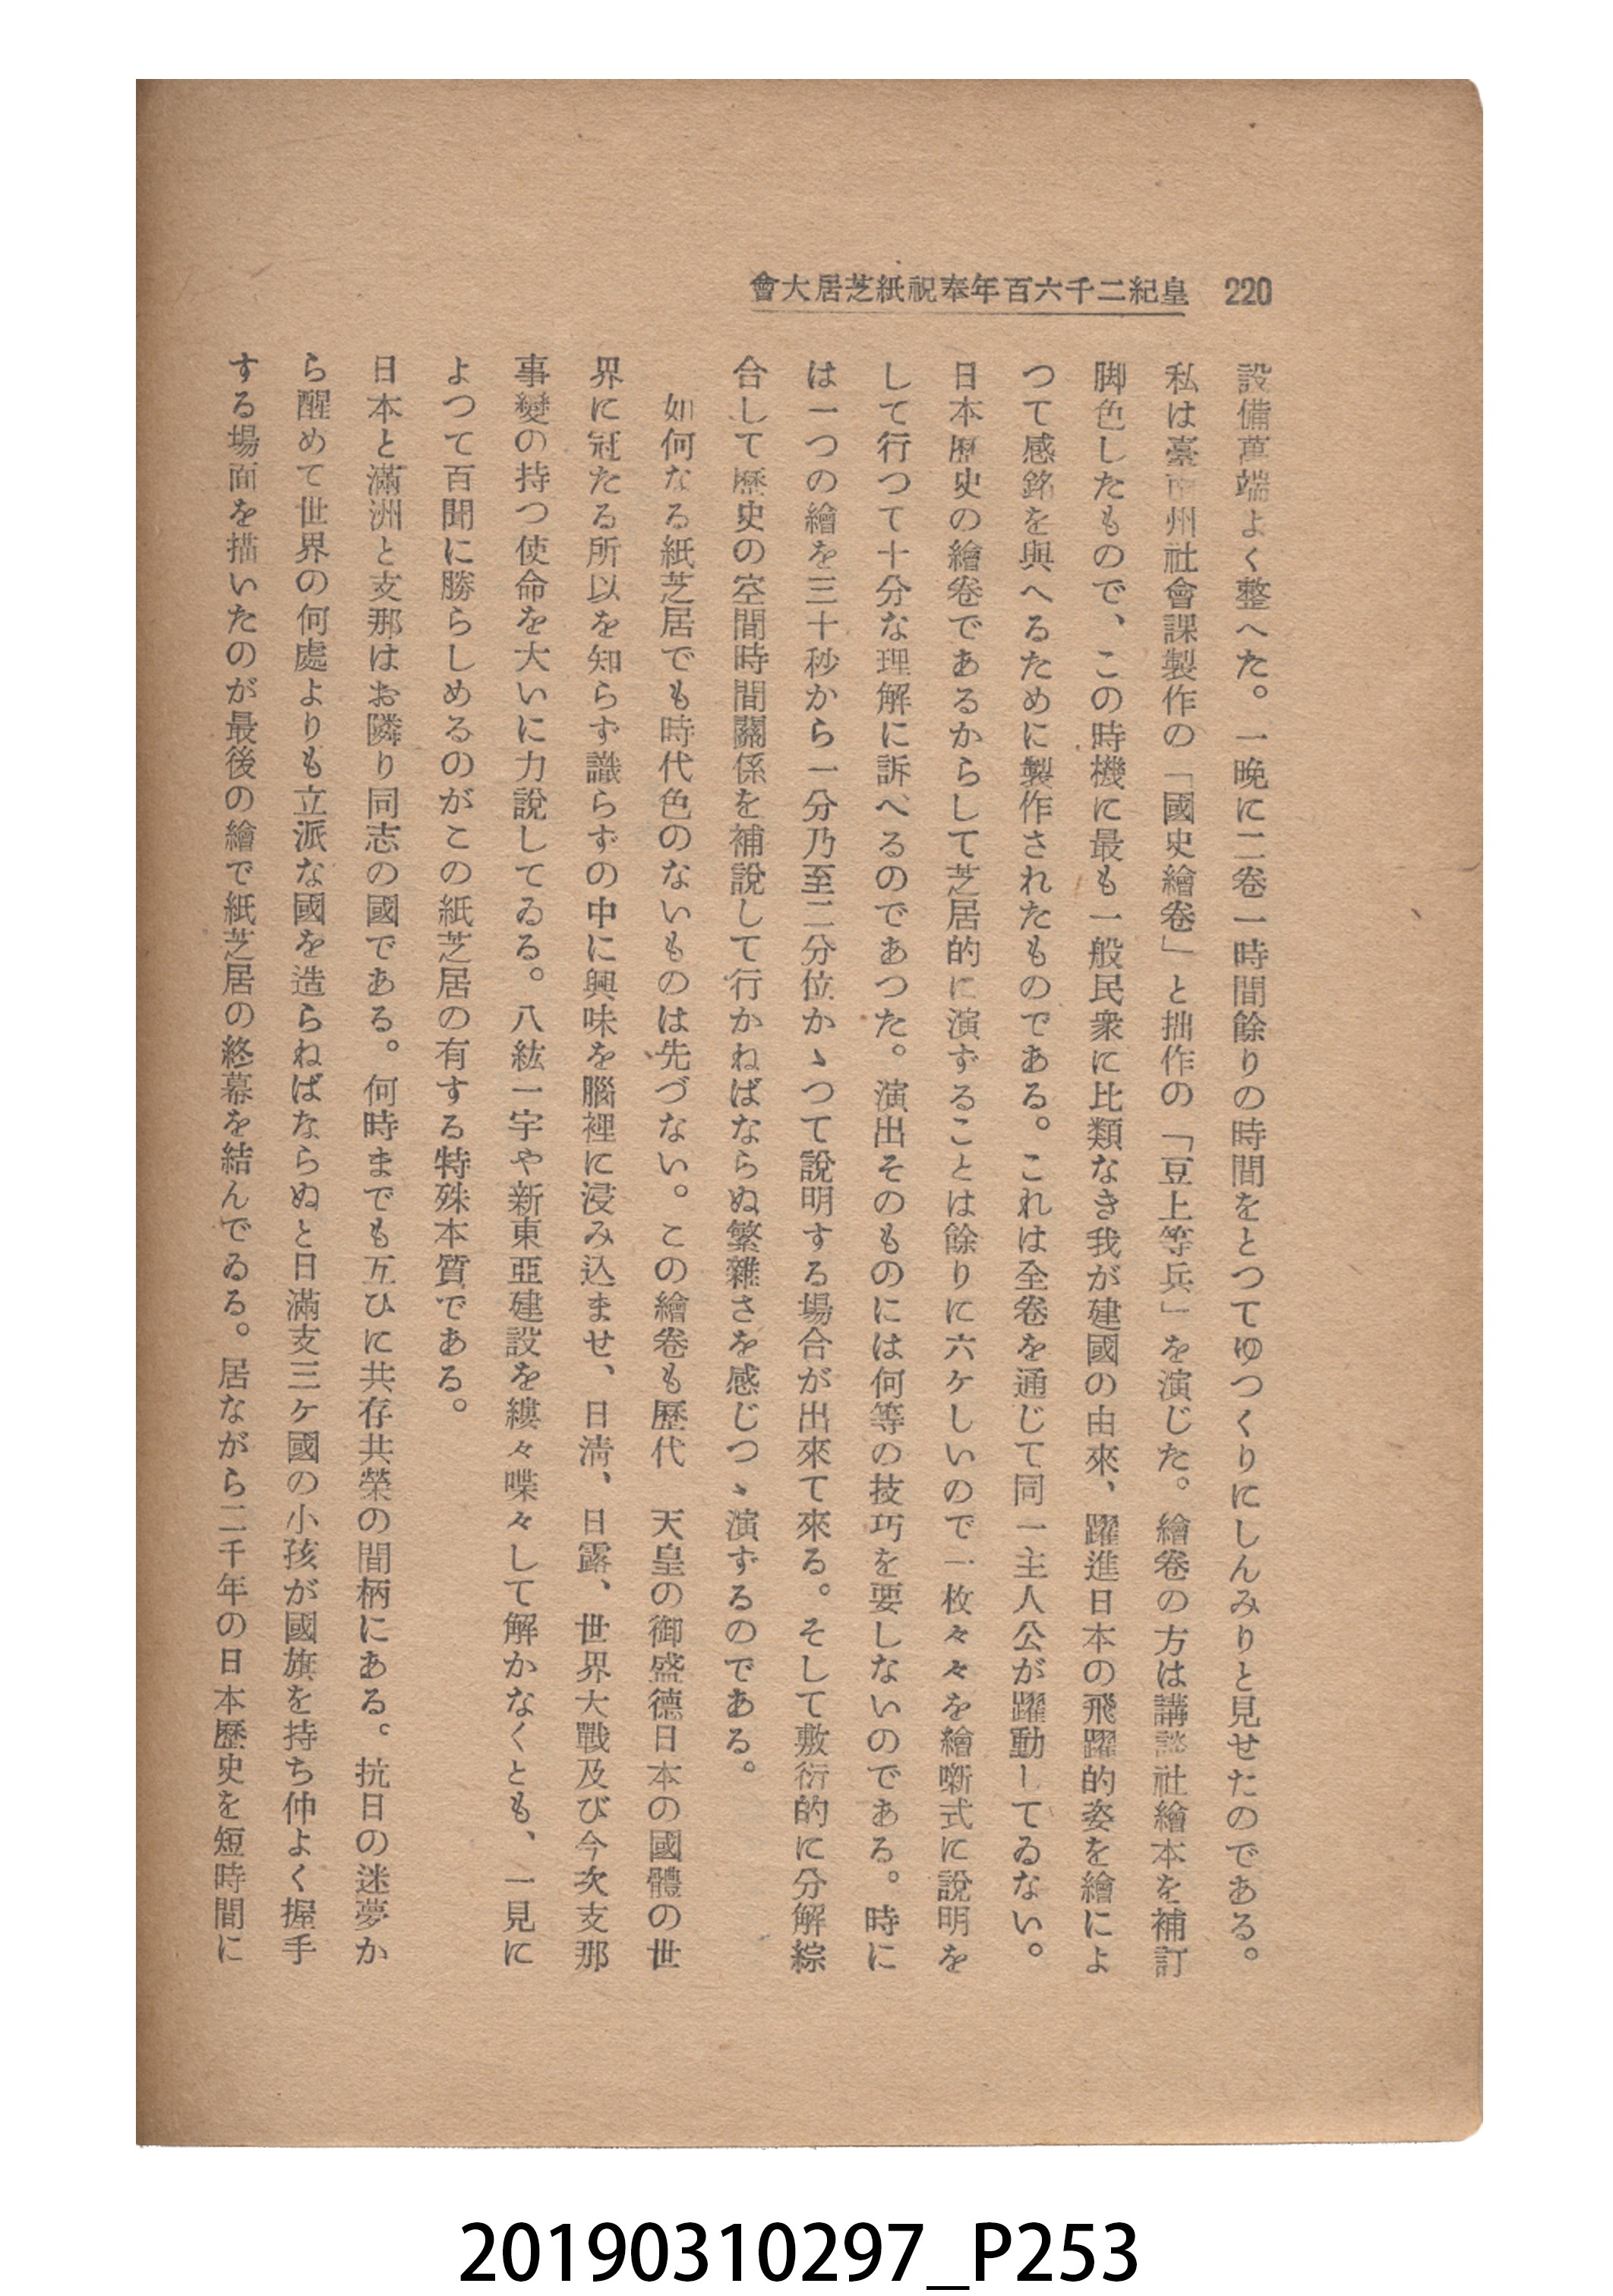 220 皇紀二千六百年奉祝紙芝居大會
設備萬端よく整へた。一晩に二卷一時間餘りの時間をとつてゆつくりにしんみりと見せたのである。
私は臺南州社會課製作の「國史繪卷」と拙作の「豆上等兵」を演じた。繪卷の方は講談社繪本を補訂
脚色したもので、この時機に最も一般民衆に比類なき我が建國の由來、躍進日本の飛躍的姿を繪によ
つて感銘を與へるために製作されたものである。これは全卷を通じて同一主人公が躍動してゐない。
日本歷史の繪卷であるからして芝居的に演ずることは餘りに六ケしいので一枚々々を繪噺式に說明を
して行つて十分な理解に訴へるのであつた。演出そのものには何等の技巧を要しないのである。時に
は一つの繪を三十秒から一分乃至二分位かゝつて說明する場合が出來て來る。そして敷衍的に分解綜
合して歷史の空間時間關係を補說して行かねばならぬ繁雜さを感じつゝ演ずるのである。
如何なる紙芝居でも時代色のないものは先づない。この繪卷も歷代　天皇の御盛德日本の國體の世
界に冠たる所以を知らず識らずの中に興味を腦裡に浸み込ませ、日淸、日露、世界大戰及び今次支那
事變の持つ使命を大いに力說してゐる。八紘一宇や新東亞建設を縷々喋々して解かなくとも、一見に
よつて百聞に勝らしめるのがこの紙芝居の有する特殊本質である。
日本と滿洲と支那はお隣り同志の國である。何時までも互ひに共存共榮の間柄にある。抗日の迷夢か
ら醒めて世界の何處よりも立派な國を造らねばならぬと日滿支三ケ國の小孩が國旗を持ち仲よく握手
する場面を描いたのが最後の繪で紙芝居の終幕を結んでゐる。居ながら二千年の日本歷史を短時間に
20190310297_P253